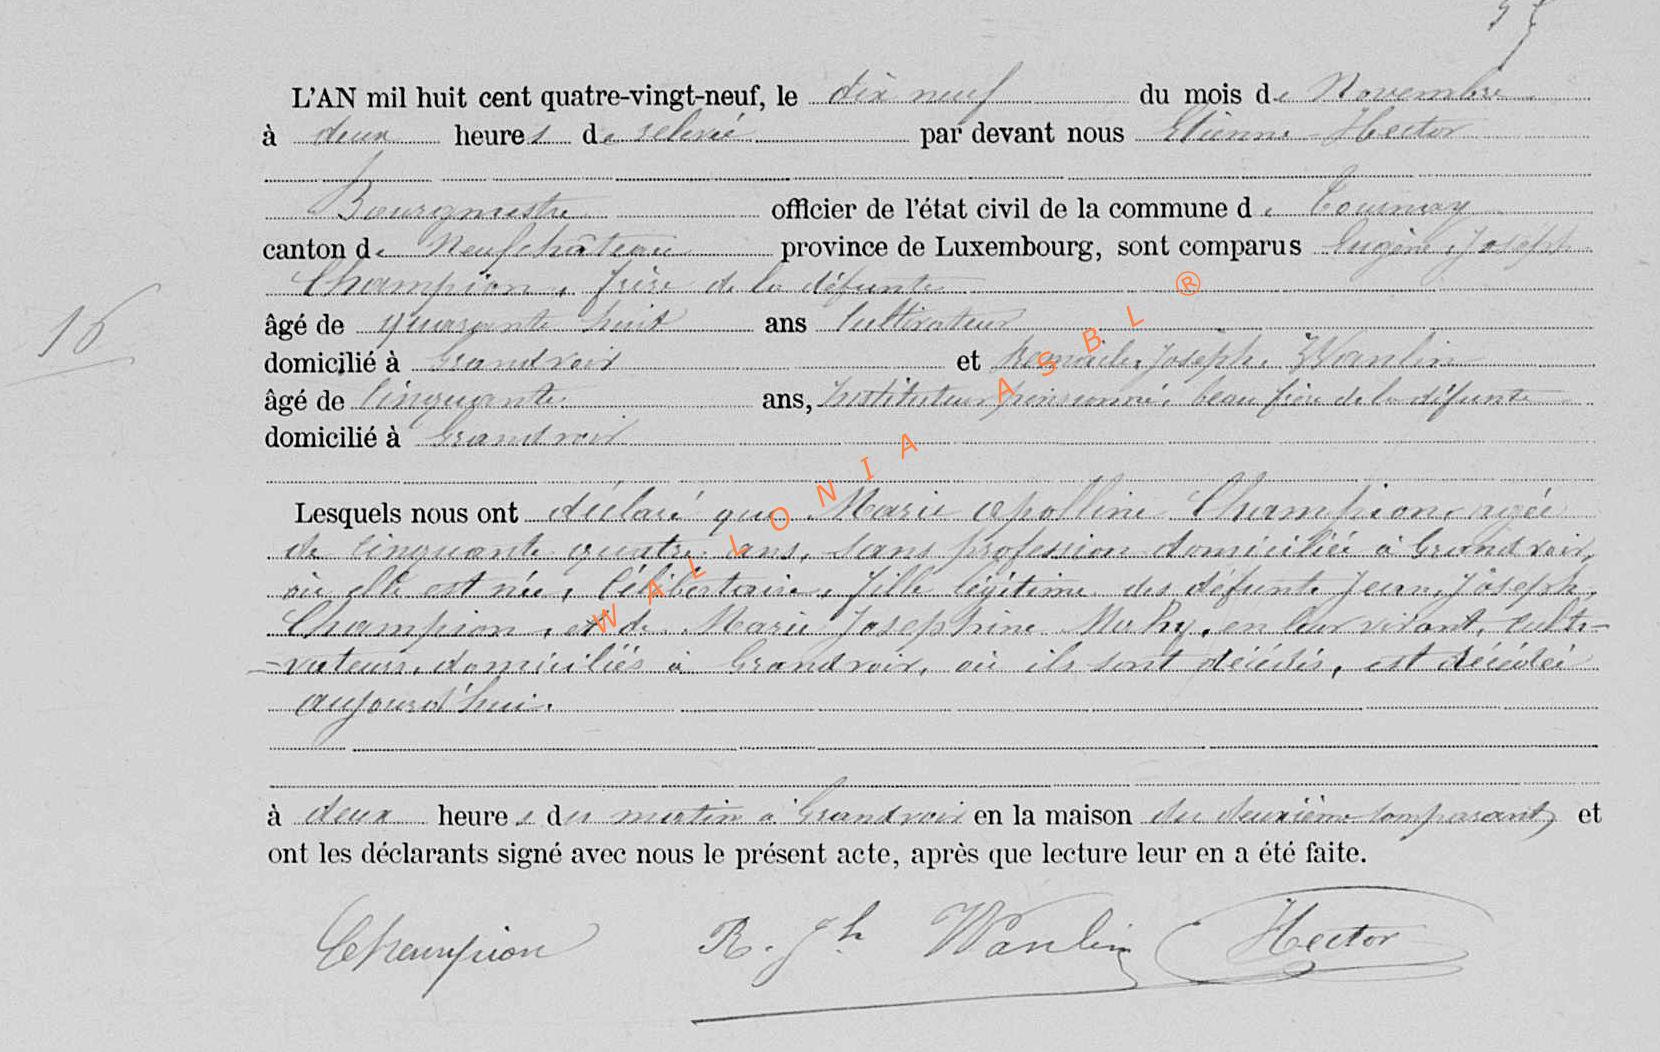 L'AN mil huit cent quatre-vingt-neuf, le dix neuf du mois de Novembre
à deux heures de relevé par devant nous Etienne Hector
Bourgmestre officier de l'état civil de la commune de Tournay
canton de Neufchâteau province de Luxembourg, sont comparus Eugène, Joseph
Champion, frère de la défunte
âgé de quarante huit ans cultivateur
16
domicilié à Grandvoir et Joseph, Wanlin
âgé de cinquante ans, Instituteur pensionné, beau frère de la défunte
domicilié à Grandvoir
Lesquels nous ont déclaré que Marie Apolline Champion, agée
de cinquante quatre ans, sans profession domiciliée à Grandvoir,
où elle est née, Célibataire, fille légitime des défunts Jean, Joseph,
Champion, et de Marie Josephine Mahy, en leur vivant, culti-
-vateurs, domiciliés à Grandvoir, où ils sont décédés, est décédée
aujourd'hui.
à deux heures du matin à Grandvoir en la maison du deuxième comparant, et
ont les déclarants signé avec nous le présent acte, après que lecture leur en a été faite.
Champion R. Jh Wanlin Hector
WALLONIA ASBL ®